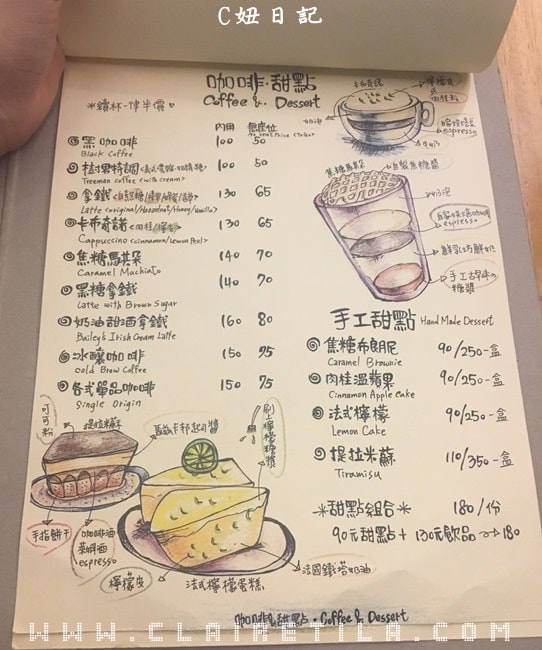 C妞日記
咖啡・甜點
Coffee & Dessert
*續杯一律半價♡
內用 無座位
No Seat Price (To Go)
黑咖啡 100 50
Black Coffee
樹果特調 100 50
Treeman coffee (with cream)
拿鐵 130 65
Latte <original/Hazelnut/Honey/Vanilla>
卡布奇諾 <肉桂/檸檬> 130 65
Cappuccino <cinnamon/Lemon Peel>
焦糖馬其朵 140 70
Caramel Machiato
黑糖拿鐵 140 70
Latte with Brown Sugar
奶油甜酒拿鐵 160 80
Bailey's Irish Cream Latte
冰釀咖啡 150 75
Cold Brew Coffee
各式單品咖啡 150 75
Single Origin
卡布奇諾
檸檬皮
肉桂粉
奶泡
espresso
牛奶
焦糖馬其朵
自製焦糖醬
奶泡
espresso
鮮乳坊鮮奶
手工古早味
糖漿
手工甜點 Hand Made Dessert
焦糖布朗尼 90/250-盒
Caramel Brownie
肉桂溫蘋果 90/250-盒
Cinnamon Apple Cake
法式檸檬 90/250-盒
Lemon Cake
提拉米蘇 110/350-盒
Tiramisu
*甜點組合* 180/份
90元甜點+130元飲品→180
可可粉
提拉米蘇
馬斯卡邦起司醬
刷上檸檬糖漿
手指餅干
咖啡酒
萊姆酒
espresso
檸檬皮
法式檸檬蛋糕
法國鐵塔奶油
咖啡&甜點・Coffee & Dessert
WWW.CLAIRETILA.COM